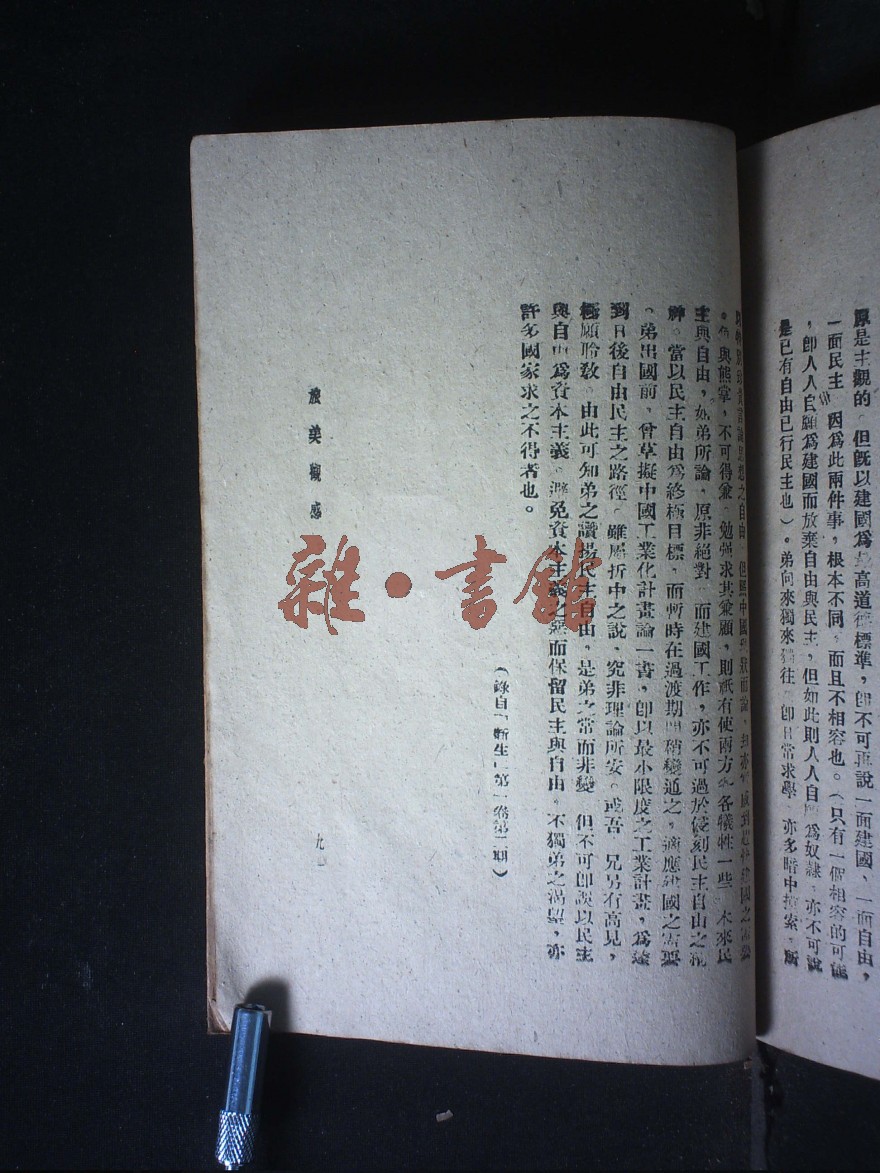 原是主觀的。但既以建國爲最高道德標準，卽不可再說一面建國、一面自由，
一面民主。因爲此兩件事，根本不同，而且不相容也。（只有一個相容的可能
，卽人人自願爲建國而放棄自由與民主，但如此則人人自 爲奴隸。亦不可說
是已有自由已行民主也）。弟向來獨來獨往。卽日常求學，亦多暗中摸索。所
思想之自由。但照中國 狀而論，
。魚與熊掌，不可得兼。勉强求其兼顧，則祇有使兩方 各犧牲一些。本來民
主與自由，如弟所論，原非絕對。而建國工作，亦不可過於侵刻民主自由之精
神。當以民主自由爲終極目標，而暫時在過渡期間稍變通之，適應建國之需要
。弟出國前，曾草擬中國工業化計畫論一書，卽以最小限度之工業計畫，爲達
到日後自由民主之路徑。雖屬折中之說，究非理論所安。或吾　兄另有高見，
極願聆敎。由此可知弟之讚揚民主自由，是弟之常而非變。但不可卽誤以民主
與自由爲資本主義。避免資本主義之惡而保留民主與自由。不獨弟之渴望，亦
許多國家求之不得者也。
（錄自「新生」第一卷第二期）
旅美觀感
九
雜·書館